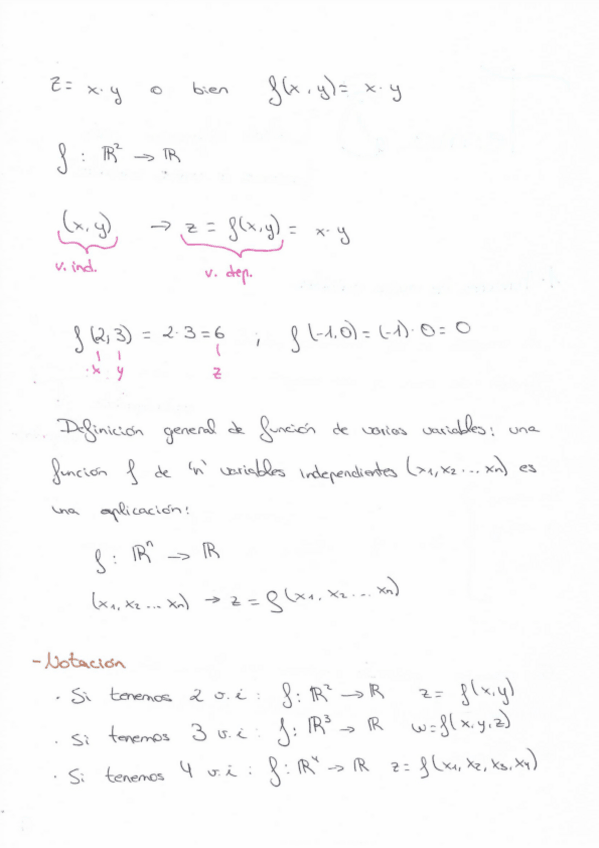 z = x·y o bien f(x, y) = x·y
f : ℝ² → ℝ
(x, y) → z = f(x,y) = x·y
v. ind. v. dep.
f(2, 3) = 2·3 = 6 ; f(-1,0) = (-1)·0 = 0
x y z
Definición general de función de varias variables: una
función f de 'n' variables independientes (x₁, x₂ ... xₙ) es
una aplicación:
f : ℝⁿ → ℝ
(x₁, x₂ ... xₙ) → z = f(x₁, x₂ ... xₙ)
- Notación
· Si tenemos 2 v.i : f : ℝ² → ℝ z = f(x,y)
· Si tenemos 3 v.i : f : ℝ³ → ℝ w = f(x,y,z)
· Si tenemos 4 v.i : f : ℝ⁴ → ℝ z = f(x₁, x₂, x₃, x₄)